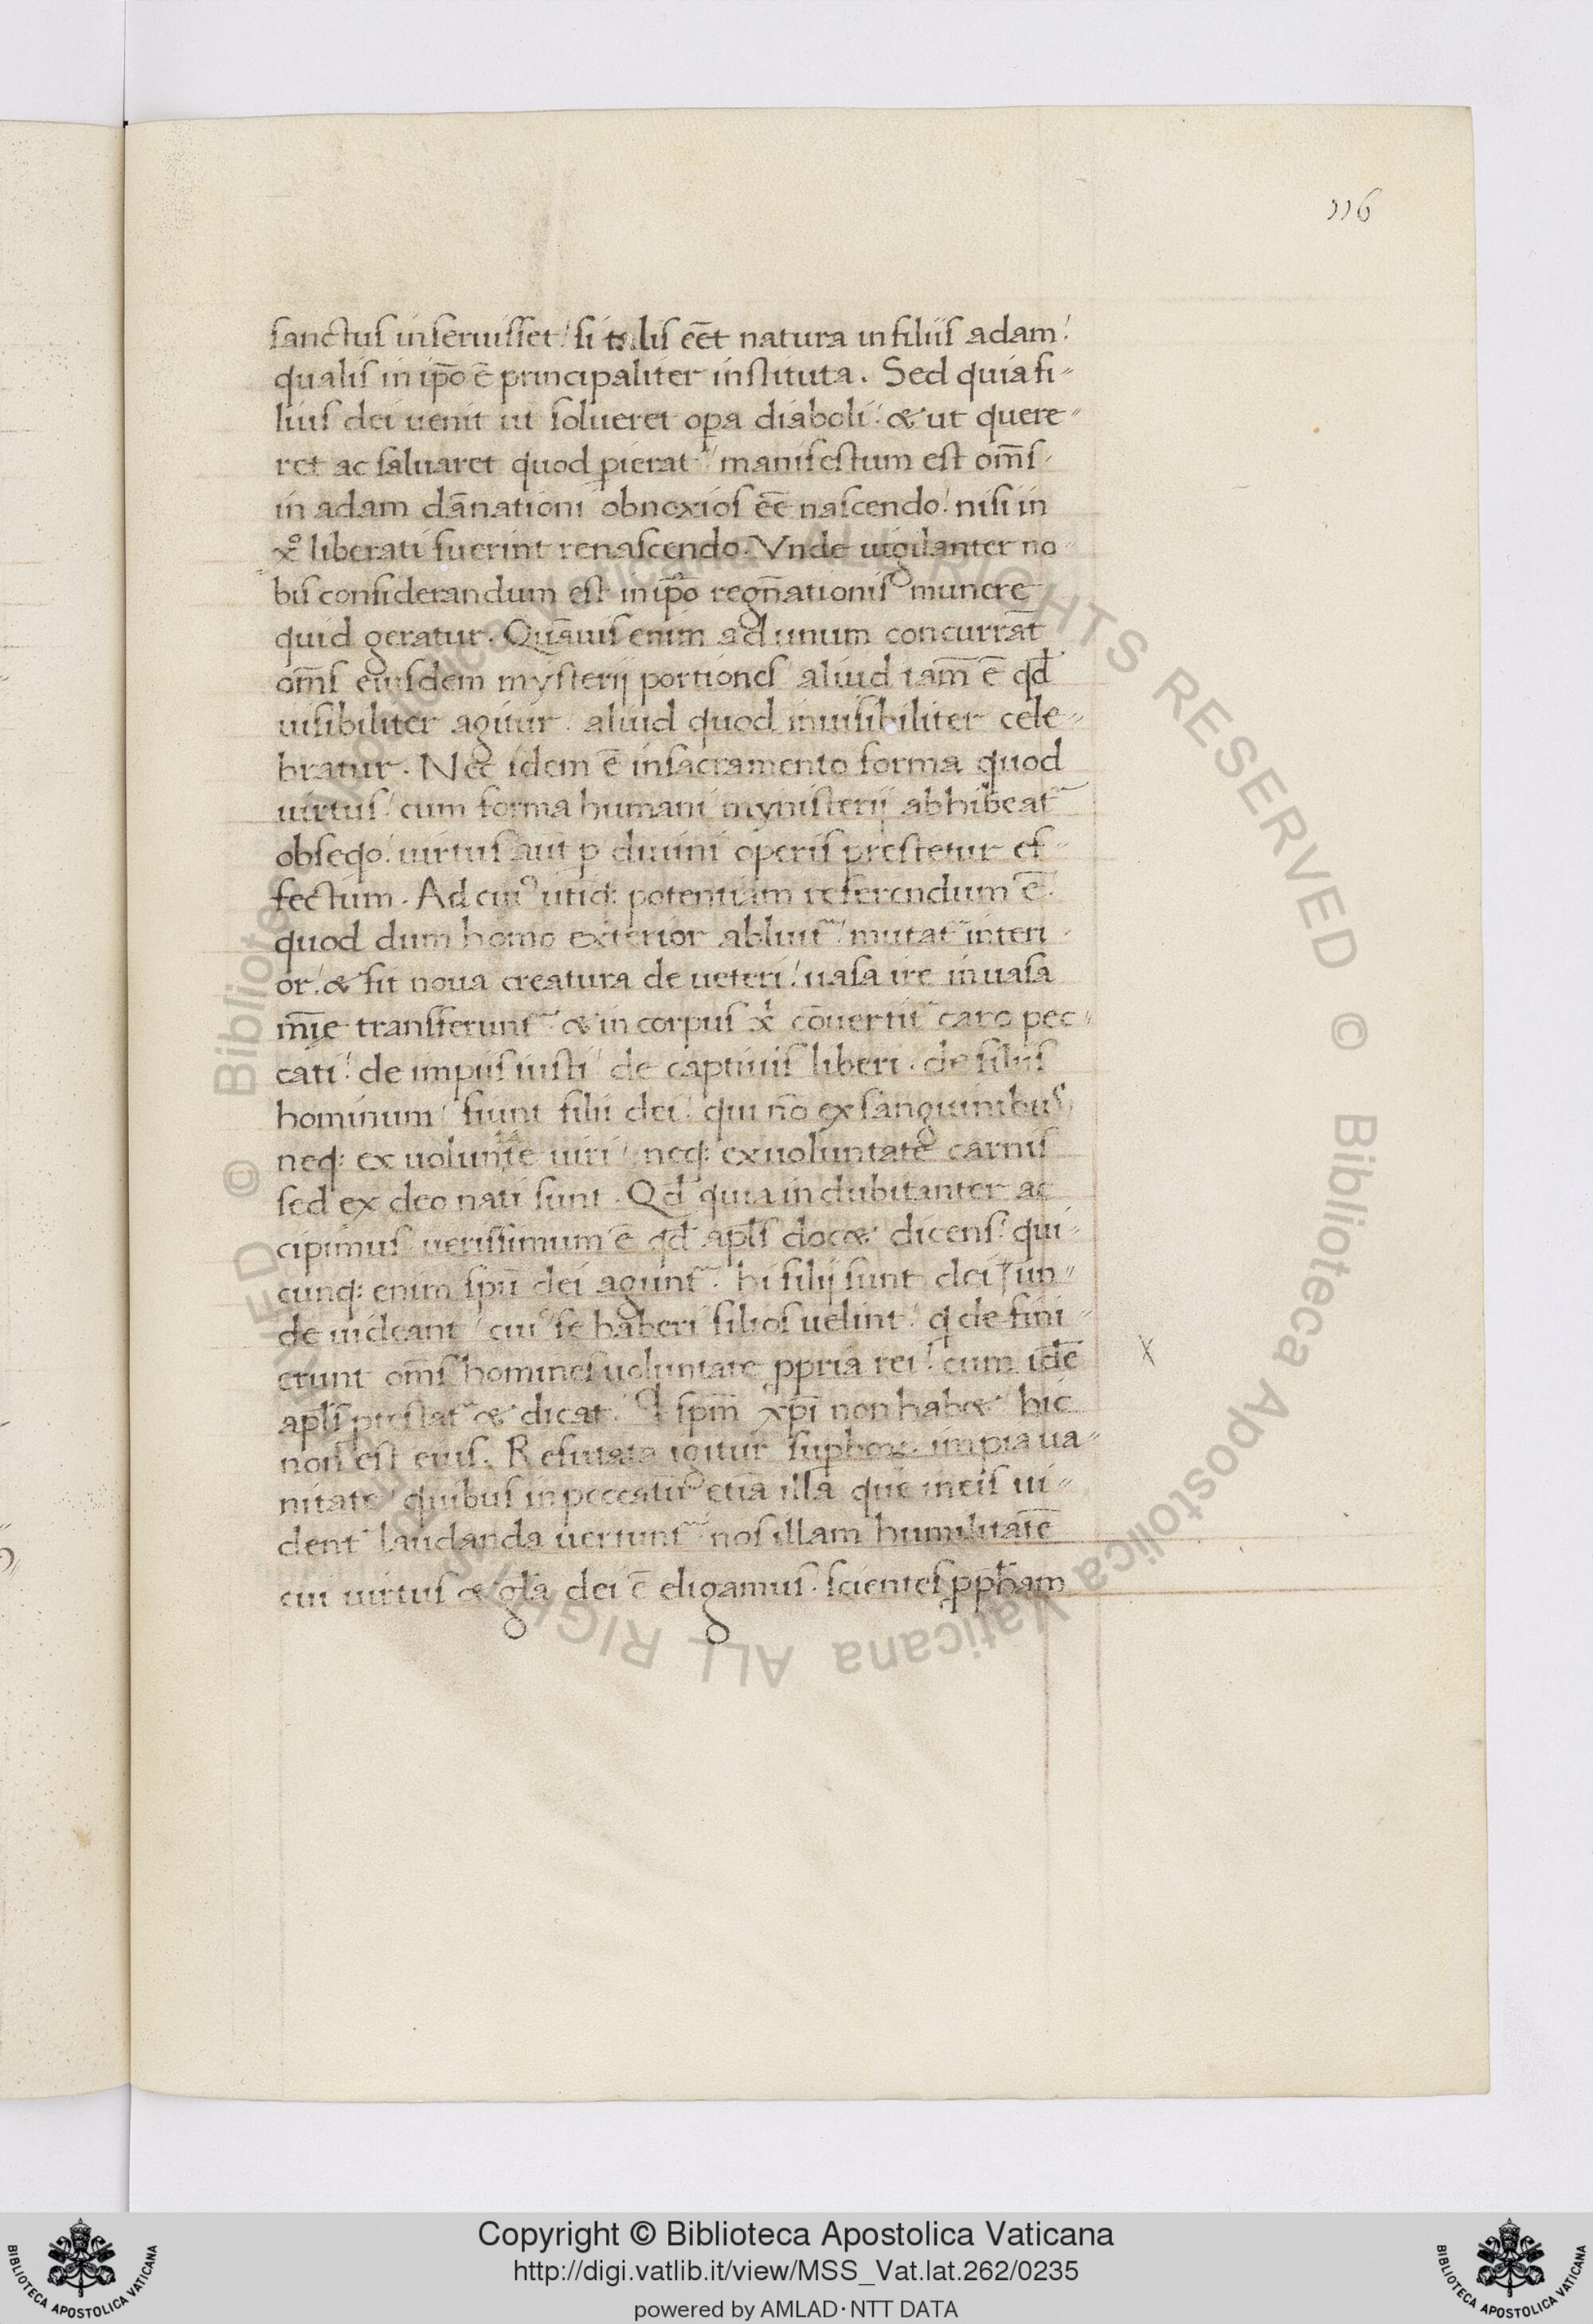 116
sanctus inseruisset / si talis eēt natura in filiis adam /
qualis in ip̄o ē principaliter instituta. Sed quia fi-
lius dei uenit ut solueret oꝑa diaboli / & ut quere-
ret ac saluaret quod ꝑierat / manifestum est om̄s
in adam dānationi obnoxios eē̄ nascendo / nisi in
xº liberati fuerint renascendo. Vnde uigilanter no-
bis considerandum est in ip̄o regn̄ationis munere
quid geratur. Quāuis enim ad unum concurrāt
om̄s eiusdem mysterij portiones aliud tam̄ ē qđ
uisibiliter agitur. aliud quod inuisibiliter cele-
bratur. Nec idem ē in sacramento forma quod
uirtus / cum forma humani mynisterij abhibeat᷑
obseqo / uirtus aut ꝑ diuini operis prestetur ef-
fectum. Ad cuiꝰ utiq: potentiam referendum ē.
quod dum homo exterior abluit᷑ / mutat᷑ interi-
or / & fit noua creatura de ueteri / uasa ire in uasa
m̄ie transferunt᷑ & in corpus xⁱ cōuertit᷑ caro pec-
cati / de impiis iusti / de captiuis liberi. de filiis
hominum / fiunt filii dei / qui nō ex sanguinibus
neq: ex uolunt̄e uiri / neq: ex uoluntate carnis
sed ex deo nati sunt. Qđ quia indubitanter ac
cipimus uerissimum ē qđ apl̄s doc& dicens / qui-
cunq: enim spū dei agunt᷑. hi filij sunt dei / un-
de uideant / cuiꝰ se haberi filios uelint / q defini-
erunt om̄s homines uoluntate ꝓpria rei / cum idē
X
apl̄s prestat᷑ & dicat. Qⁱ spm̄ xp̄i non hab& hic
non est eius. Refutata igitur suꝑborū impia ua-
nitate / quibus in peccatū etiā illa que in eis ui-
dent᷑ laudanda uertunt᷑ nos illam humilitatē
cui uirtus & gl̄a dei ē eligamus. scientes ꝓph̄am
Copyright © Biblioteca Apostolica Vaticana
http://digi.vatlib.it/view/MSS_Vat.lat.262/0235
powered by AMLAD·NTT DATA